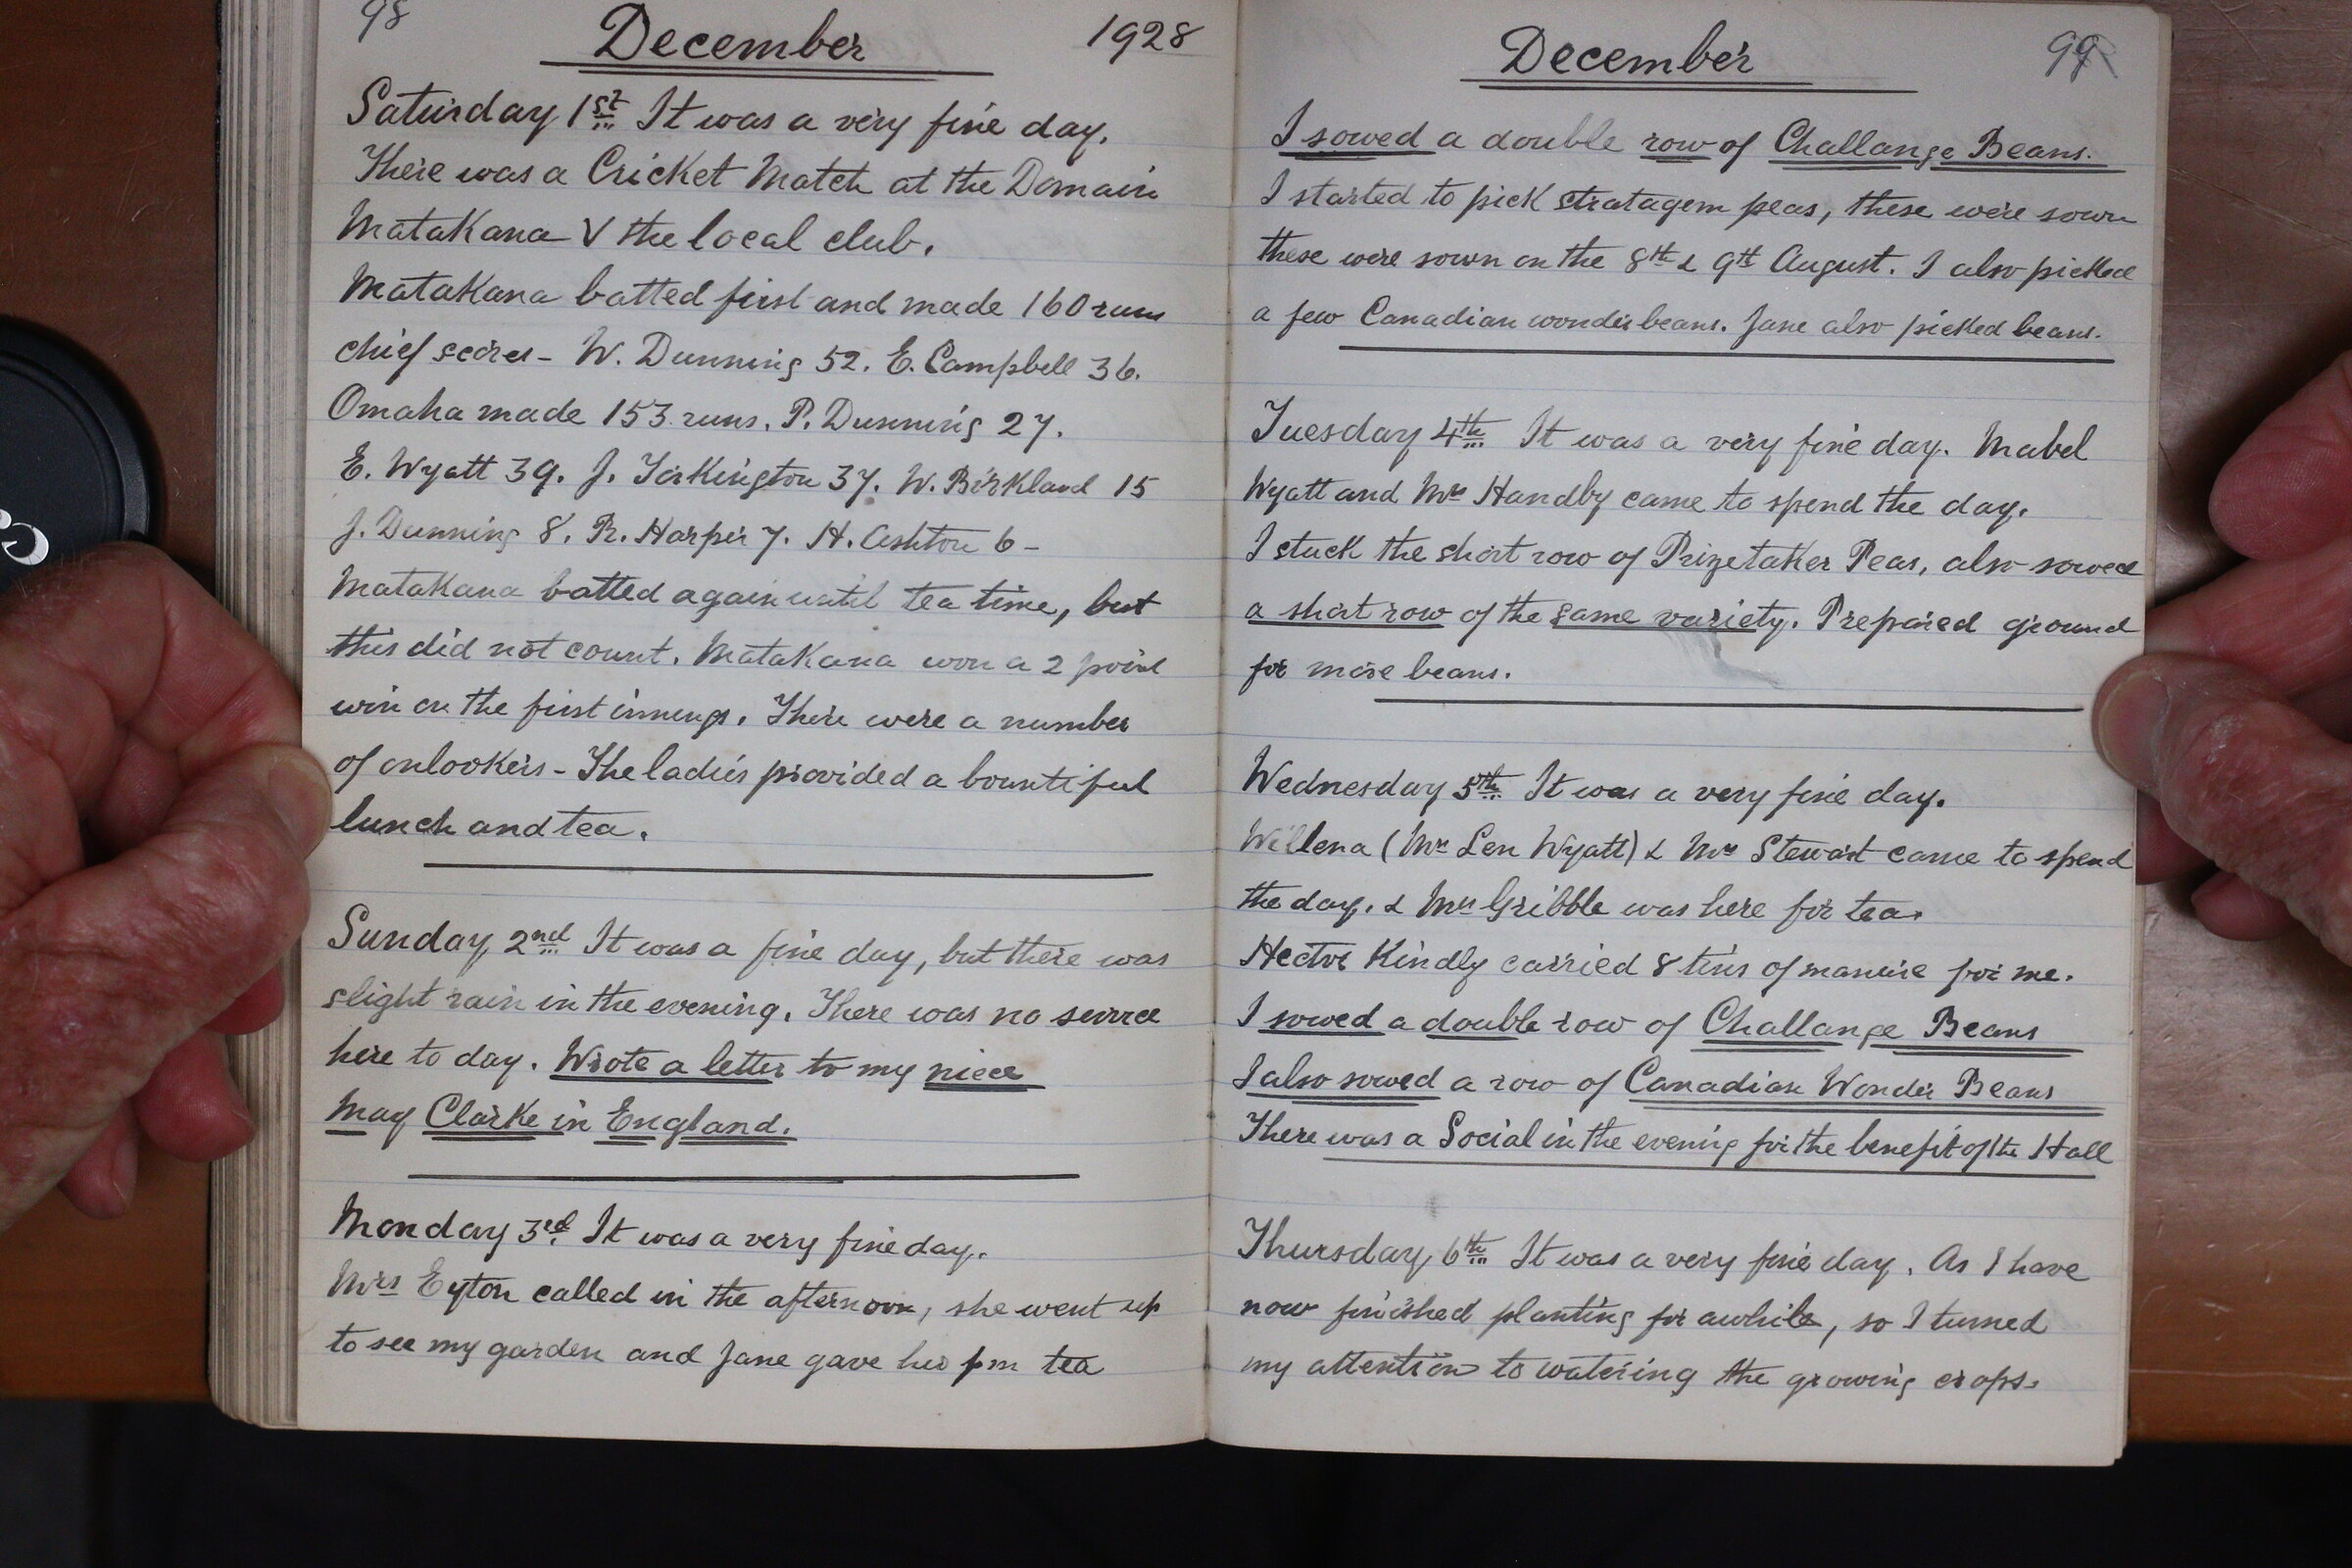 98
December 1928
Saturday 1st It was a very fine day.
There was a Cricket Match at the Domain
Matakana V the local club.
Matakana batted first and made 160 runs
chief scores - W. Dunning 52. E. Campbell 36.
Omaha made 153 runs. P. Dunning 27.
E. Wyatt 39. J. Torkington 37. W. Birkland 15
J. Dunning 8. R. Harper 7. H. Ashton 6 -
Matakana batted again until tea time, but
this did not count. Matakana won a 2 point
win on the first innings. There were a number
of onlookers - The ladies provided a bountiful
lunch and tea.
Sunday 2nd It was a fine day, but there was
slight rain in the evening. There was no service
here to day. Wrote a letter to my niece
May Clarke in England.
Monday 3rd It was a very fine day.
Mrs Eyton called in the afternoon, she went up
to see my garden and Jane gave her pm tea
December 99
I sowed a double row of Challange Beans.
I started to pick stratagem peas, these were sown
these were sown on the 8th & 9th August. I also picked
a few Canadian wonder beans. Jane also picked beans.
Tuesday 4th It was a very fine day. Mabel
Wyatt and Mrs Handby came to spend the day.
I stuck the short row of Prizetaker Peas, also sowed
a short row of the same variety. Prepared ground
for more beans.
Wednesday 5th It was a very fine day.
Willena (Mrs Len Wyatt) & Mrs Stewart came to spend
the day. & Mrs Gribble was here for tea.
Hector Kindly carried 8 tins of manure for me.
I sowed a double row of Challange Beans
I also sowed a row of Canadian Wonder Beans
There was a Social in the evening for the benefit of the Hall
Thursday 6th It was a very fine day. As I have
now finished planting for awhile, so I turned
my attention to watering the growing crops.